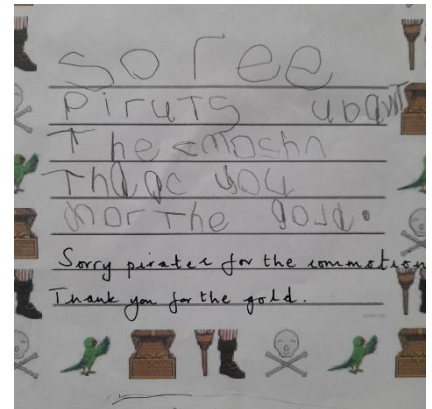 So ree
Piruts ubawt
The cmoshn
Thac you
for the gold.
Sorry pirates for the commotion
Thank you for the gold.